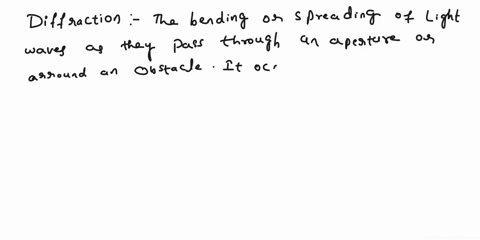 Diffraction :- The bending or spreading of Light
waves as they pass through an aperture or
arround an obstacle. It oc.